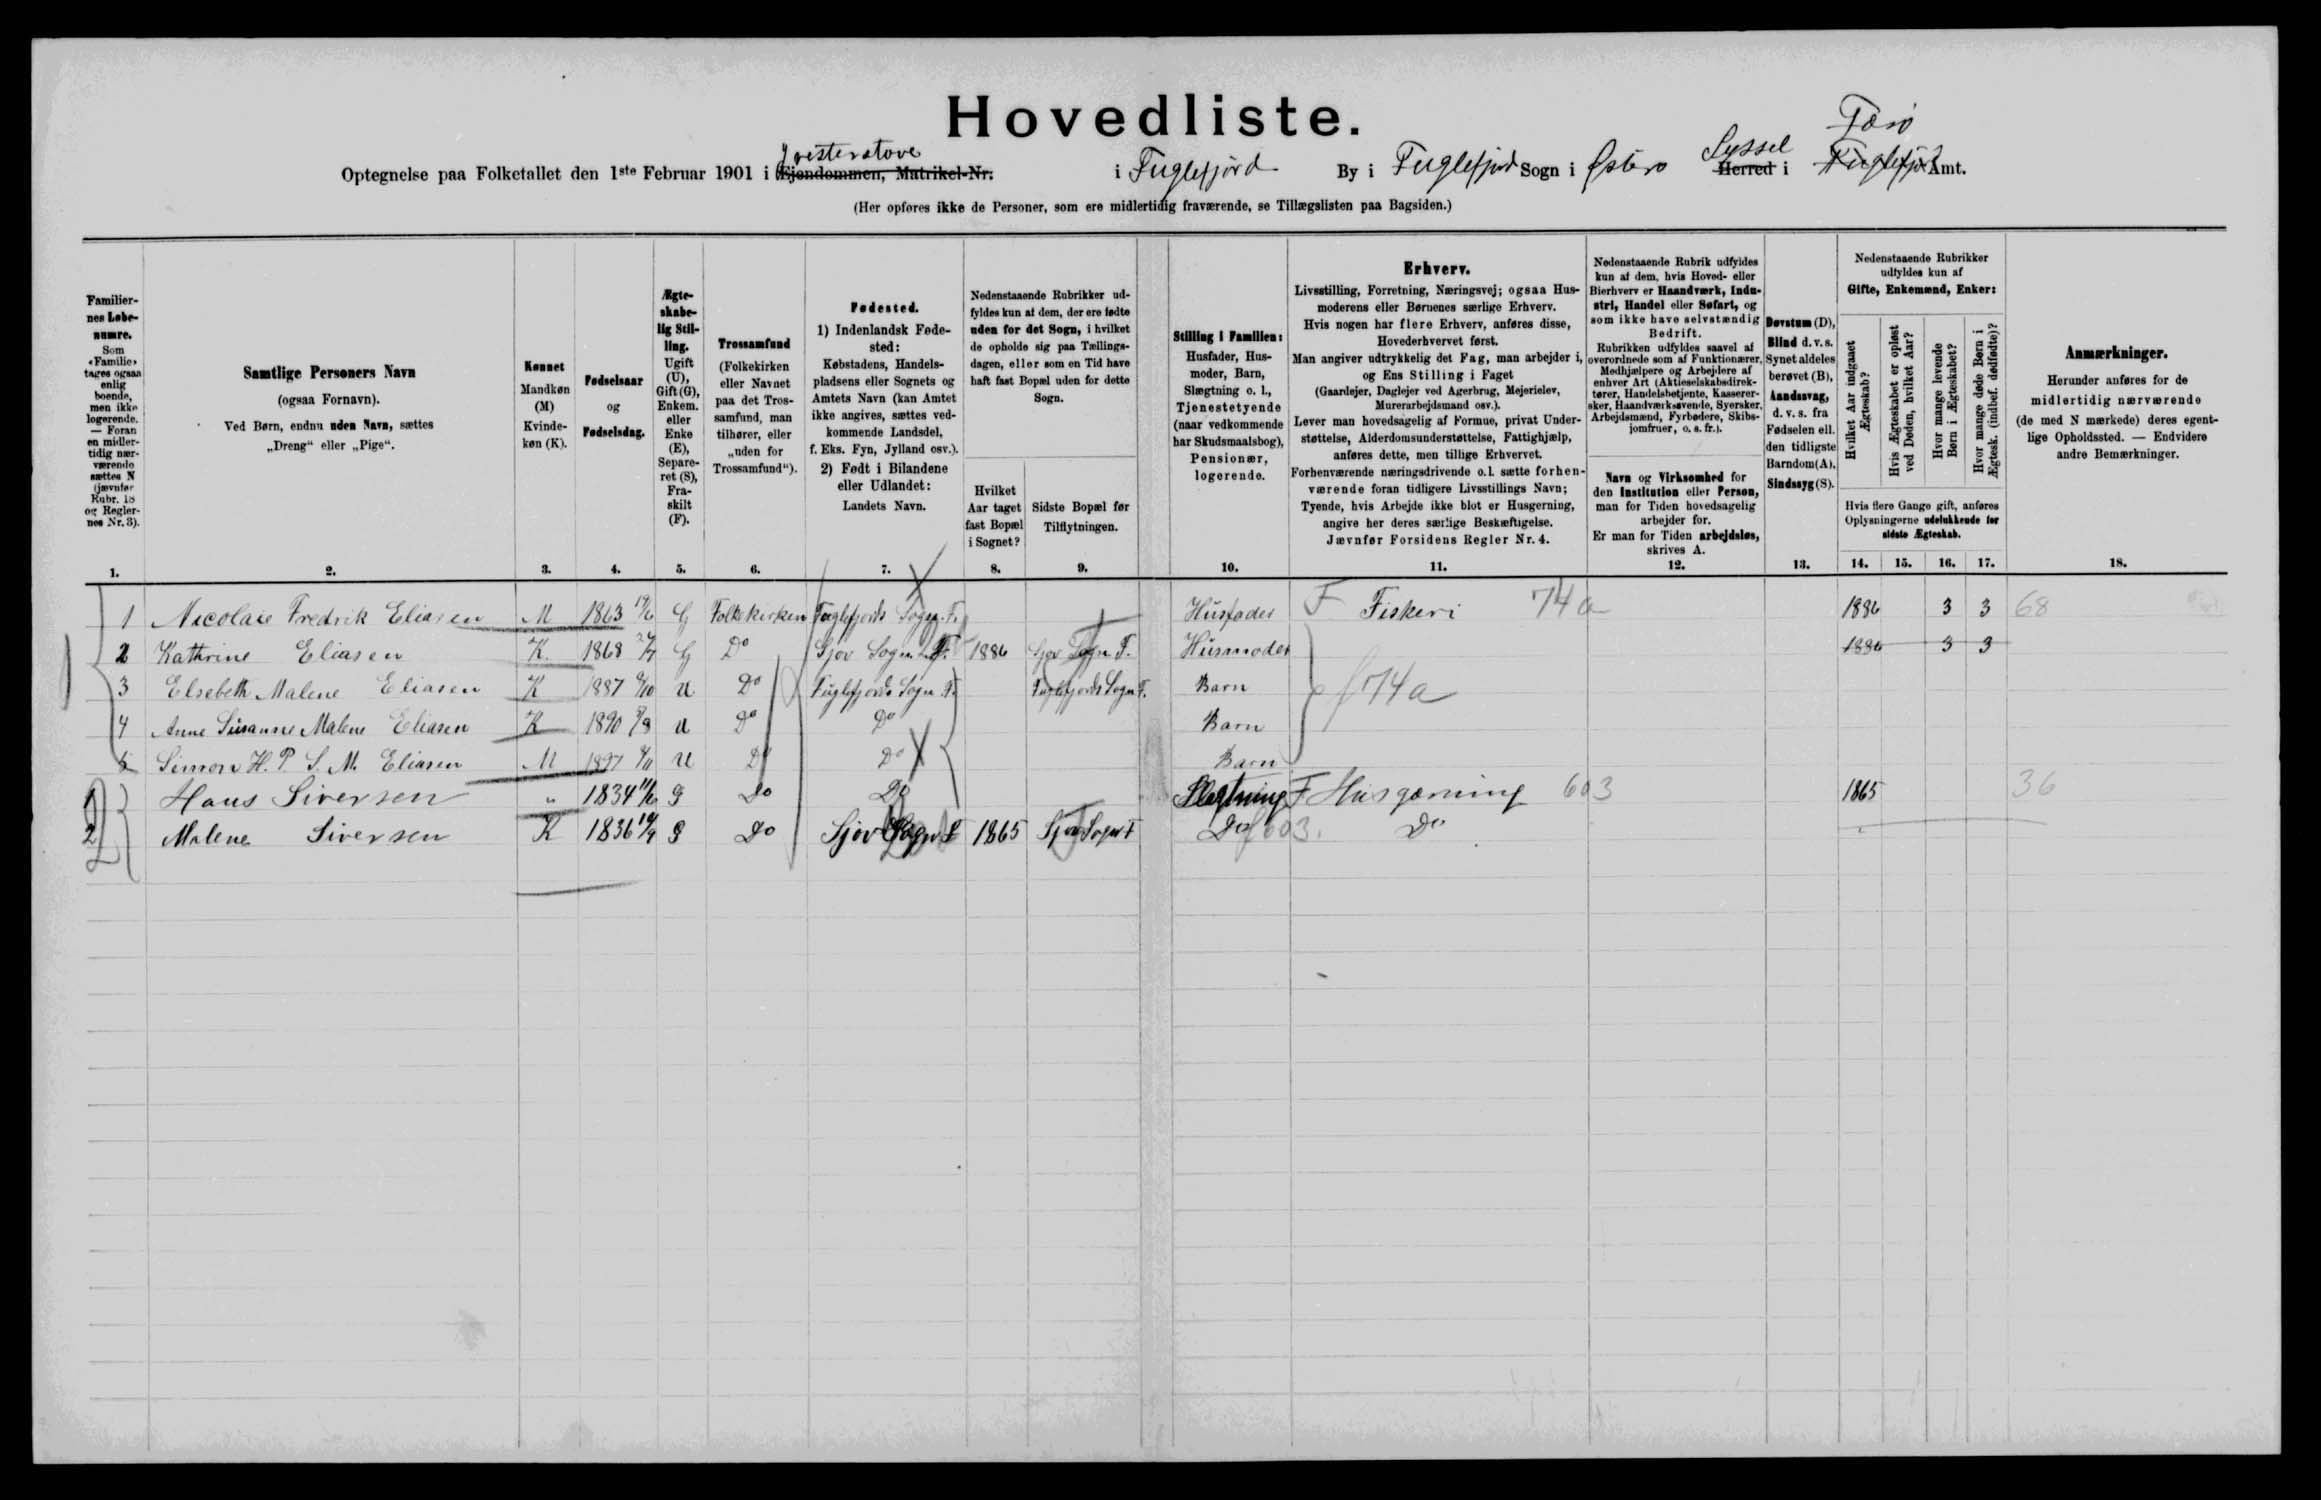 Hovedliste.
Optegnelse paa Folketallet den 1ste Februar 1901 i Ejendommen, Matrikel-Nr. i Fuglefjord By i Fuglefjord Sogn i Østerø Syssel Herred i Færø Fuglefjord Amt.
(Her opføres ikke de Personer, som ere midlertidig fraværende, se Tillægslisten paa Bagsiden.)
Familier-
nes Løbe-
numre.
Som
«Familie»
tages ogsaa
enlig
boende,
men ikke
logerende.
— Foran
en midler-
tidig nær-
værende
sættes N
(jævnfør
Rubr. 18
og Regler-
nes Nr. 3).
Samtlige Personers Navn
(ogsaa Fornavn).
Ved Børn, endnu uden Navn, sættes
„Dreng“ eller „Pige“.
Kønnet
Mandkøn
(M)
Kvinde-
køn (K).
Fødselsaar
og
Fødselsdag.
Ægte-
skabe-
lig Stil-
ling.
Ugift
(U),
Gift (G),
Enkem.
eller
Enke
(E),
Separe-
ret (S),
Fra-
skilt
(F).
Trossamfund
(Folkekirken
eller Navnet
paa det Tros-
samfund, man
tilhører, eller
„uden for
Trossamfund“).
Fødested.
1) Indenlandsk Føde-
sted:
Købstadens, Handels-
pladsens eller Sognets og
Amtets Navn (kan Amtet
ikke angives, sættes ved-
kommende Landsdel,
f. Eks. Fyn, Jylland osv.).
2) Født i Bilandene
eller Udlandet:
Landets Navn.
Nedenstaaende Rubrikker ud-
fyldes kun af dem, der ere fødte
uden for det Sogn, i hvilket
de opholde sig paa Tællings-
dagen, eller som en Tid have
haft fast Bopæl uden for dette
Sogn.
Hvilket
Aar taget
fast Bopæl
i Sognet?
Sidste Bopæl før
Tilflytningen.
Stilling i Familien:
Husfader, Hus-
moder, Barn,
Slægtning o. l.,
Tjenestetyende
(naar vedkommende
har Skudsmaalsbog),
Pensionær,
logerende.
Erhverv.
Livsstilling, Forretning, Næringsvej; ogsaa Hus-
moderens eller Børnenes særlige Erhverv.
Hvis nogen har flere Erhverv, anføres disse,
Hovederhvervet først.
Man angiver udtrykkelig det Fag, man arbejder i,
og Ens Stilling i Faget
(Gaardejer, Daglejer ved Agerbrug, Mejerielev,
Murerarbejdsmand osv.).
Lever man hovedsagelig af Formue, privat Under-
støttelse, Alderdomsunderstøttelse, Fattighjælp,
anføres dette, men tillige Erhvervet.
Forhenværende næringsdrivende o.l. sætte forhen-
værende foran tidligere Livsstillings Navn;
Tyende, hvis Arbejde ikke blot er Husgerning,
angive her deres særlige Beskæftigelse.
Jævnfør Forsidens Regler Nr. 4.
Nedenstaaende Rubrik udfyldes
kun af dem, hvis Hoved- eller
Bierhverv er Haandværk, Indu-
stri, Handel eller Søfart, og
som ikke have selvstændig
Bedrift.
Rubrikken udfyldes saavel af
overordnede som af Funktionærer,
Medhjælpere og Arbejdere af
enhver Art (Aktieselskabsdirek-
tører, Handelsbetjente, Kasserer-
sker, Haandværkssvende, Syersker,
Arbejdsmænd, Fyrbødere, Skibs-
jomfruer, o. s. fr.).
Navn og Virksomhed for
den Institution eller Person,
man for Tiden hovedsagelig
arbejder for.
Er man for Tiden arbejdsløs,
skrives A.
Døvstum (D),
Blind d. v. s.
Synet aldeles
berøvet (B),
Aandssvag,
d. v. s. fra
Fødselen ell.
den tidligste
Barndom (A),
Sindssyg (S).
Nedenstaaende Rubrikker
udfyldes kun af
Gifte, Enkemænd, Enker:
Hvilket Aar indgaaet
Ægteskab?
Hvis Ægteskabet er opløst
ved Døden, hvilket Aar?
Hvor mange levende
Børn i Ægteskabet?
Hvor mange døde Børn i
Ægtesk. (indbef. dødfødte)?
Hvis flere Gange gift, anføres
Oplysningerne udelukkende for
sidste Ægteskab.
Anmærkninger.
Herunder anføres for de
midlertidig nærværende
(de med N mærkede) deres egent-
lige Opholdssted. — Endvidere
andre Bemærkninger.
1. 2. 3. 4. 5. 6. 7. 8. 9. 10. 11. 12. 13. 14. 15. 16. 17. 18.
1 Nicolaie Fredrik Eliasen M 1863 G Folkekirken Fuglefjords Sogn F. Husfader F Fiskeri 74a 1886 3 3 68
2 Kathrine Eliasen K. 1868 G Do Gjov Sogn F. 1886 Gjov Sogn F. Husmoder 1886 3 3
3 Elsebeth Malene Eliasen K 1887 U Do Fuglefjords Sogn F. Fuglefjords Sogn F. Barn f 74a
4 Anne Susanne Malene Eliasen K 1890 U Do Do Barn
5 Simon H. P. S. M. Eliasen M 1897 U Do Do Barn
1 Hans Siversen " 1834 G Do Do Slegtning F Husgærning 603 1865 36
2 Malene Siversen K 1836 G Do Gjov Sogn F 1865 Gjov Sogn F Do f 603. Do